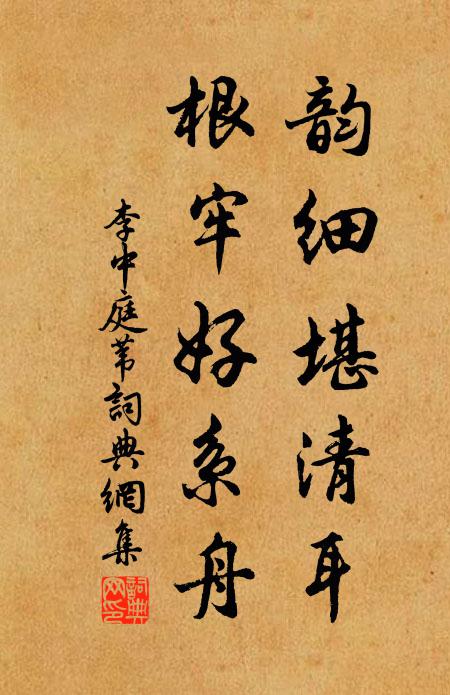 韵细堪清耳
根牢好系舟
李中庭苇詞典網集
詞典网印